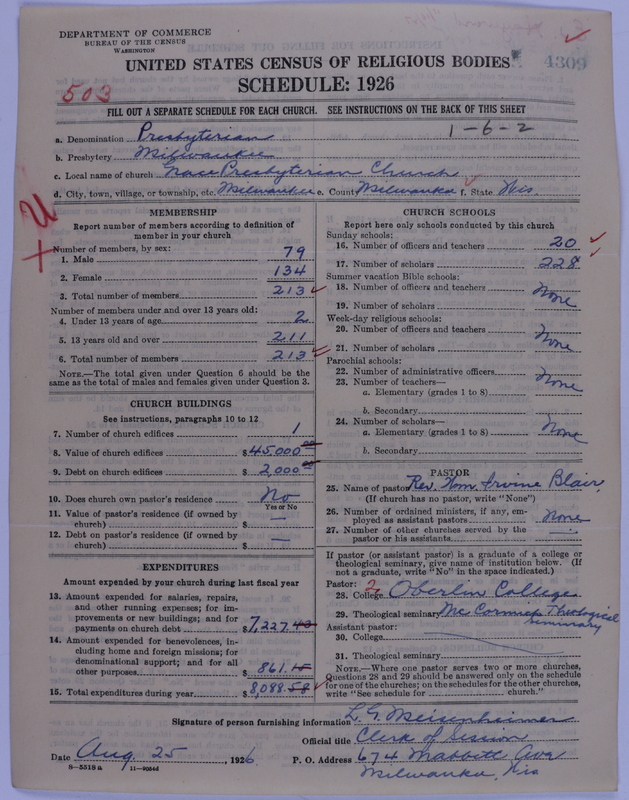 DEPARTMENT OF COMMERCE
BUREAU OF THE CENSUS
WASHINGTON
UNITED STATES CENSUS OF RELIGIOUS BODIES
4309
SCHEDULE: 1926
503
FILL OUT A SEPARATE SCHEDULE FOR EACH CHURCH. SEE INSTRUCTIONS ON THE BACK OF THIS SHEET
a. Denomination Presbyterian 1-6-2
b. Presbytery Milwaukee
c. Local name of church Grace Presbyterian Church
d. City, town, village, or township, etc. Milwaukee e. County Milwaukee f. State Wis.
MEMBERSHIP
Report number of members according to definition of
member in your church
Number of members, by sex:
1. Male 79
2. Female 134
3. Total number of members 213
Number of members under and over 13 years old:
4. Under 13 years of age 2
5. 13 years old and over 211
6. Total number of members 213
NOTE.—The total given under Question 6 should be the
same as the total of males and females given under Question 3.
CHURCH BUILDINGS
See instructions, paragraphs 10 to 12
7. Number of church edifices 1
8. Value of church edifices $45,000.00
9. Debt on church edifices $2,000.00
10. Does church own pastor's residence No
Yes or No
11. Value of pastor's residence (if owned by
church) $ —
12. Debt on pastor's residence (if owned by
church) $ —
EXPENDITURES
Amount expended by your church during last fiscal year
13. Amount expended for salaries, repairs,
and other running expenses; for im-
provements or new buildings; and for
payments on church debt $7,227.43
14. Amount expended for benevolences, in-
cluding home and foreign missions; for
denominational support; and for all
other purposes $861.15
15. Total expenditures during year $8,088.58
CHURCH SCHOOLS
Report here only schools conducted by this church
Sunday schools:
16. Number of officers and teachers 20
17. Number of scholars 228
Summer vacation Bible schools:
18. Number of officers and teachers None
19. Number of scholars
Week-day religious schools:
20. Number of officers and teachers None
21. Number of scholars
Parochial schools:
22. Number of administrative officers None
23. Number of teachers—
a. Elementary (grades 1 to 8)
b. Secondary
24. Number of scholars—
a. Elementary (grades 1 to 8) None
b. Secondary
PASTOR
25. Name of pastor Rev. Wm. Irvine Blair,
(If church has no pastor, write "None")
26. Number of ordained ministers, if any, em-
ployed as assistant pastors None
27. Number of other churches served by the
pastor or his assistants —
If pastor (or assistant pastor) is a graduate of a college or
theological seminary, give name of institution below. (If
not a graduate, write "No" in the space indicated.)
Pastor: 2
28. College Oberlin College
29. Theological seminary McCormick Theological
Seminary
Assistant pastor:
30. College
31. Theological seminary
NOTE.—Where one pastor serves two or more churches,
Questions 28 and 29 should be answered only on the schedule
for one of the churches; on the schedules for the other churches,
write "See schedule for church."
Signature of person furnishing information L. G. Meisenheimer
Official title Clerk of Session
Date Aug. 25, 1926 P. O. Address 674 Mabbett Ave
Milwaukee, Wis
8—5518a 11—9054d